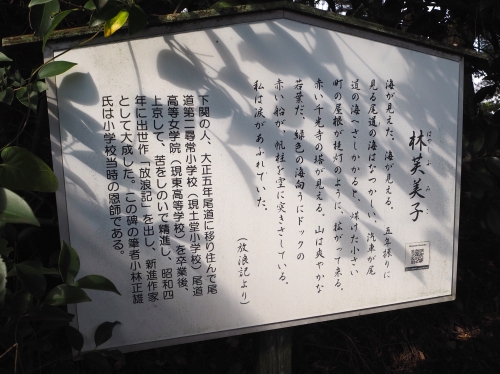 林芙美子
はやしふみこ
海が見えた。海が見える。五年振りに
見る尾道の海はなつかしい。汽車が尾
道の海へさしかかると、煤けた小さい
町の屋根が提灯のように、拡がって来る。
赤い千光寺の塔が見える。山は爽やかな
若葉だ。緑色の海向うにドックの
赤い船が、帆柱を空に突きさしている。
私は涙があふれていた。
(放浪記より)
下関の人、大正五年尾道に移り住んで尾
道第二尋常小学校(現土堂小学校)尾道
高等女学院(現東高等学校)を卒業後、
上京して、苦をしのいで精進し、昭和四
年に出世作「放浪記」を出し、新進作家
として大成した。この碑の筆者小林正雄
氏は小学校当時の恩師である。